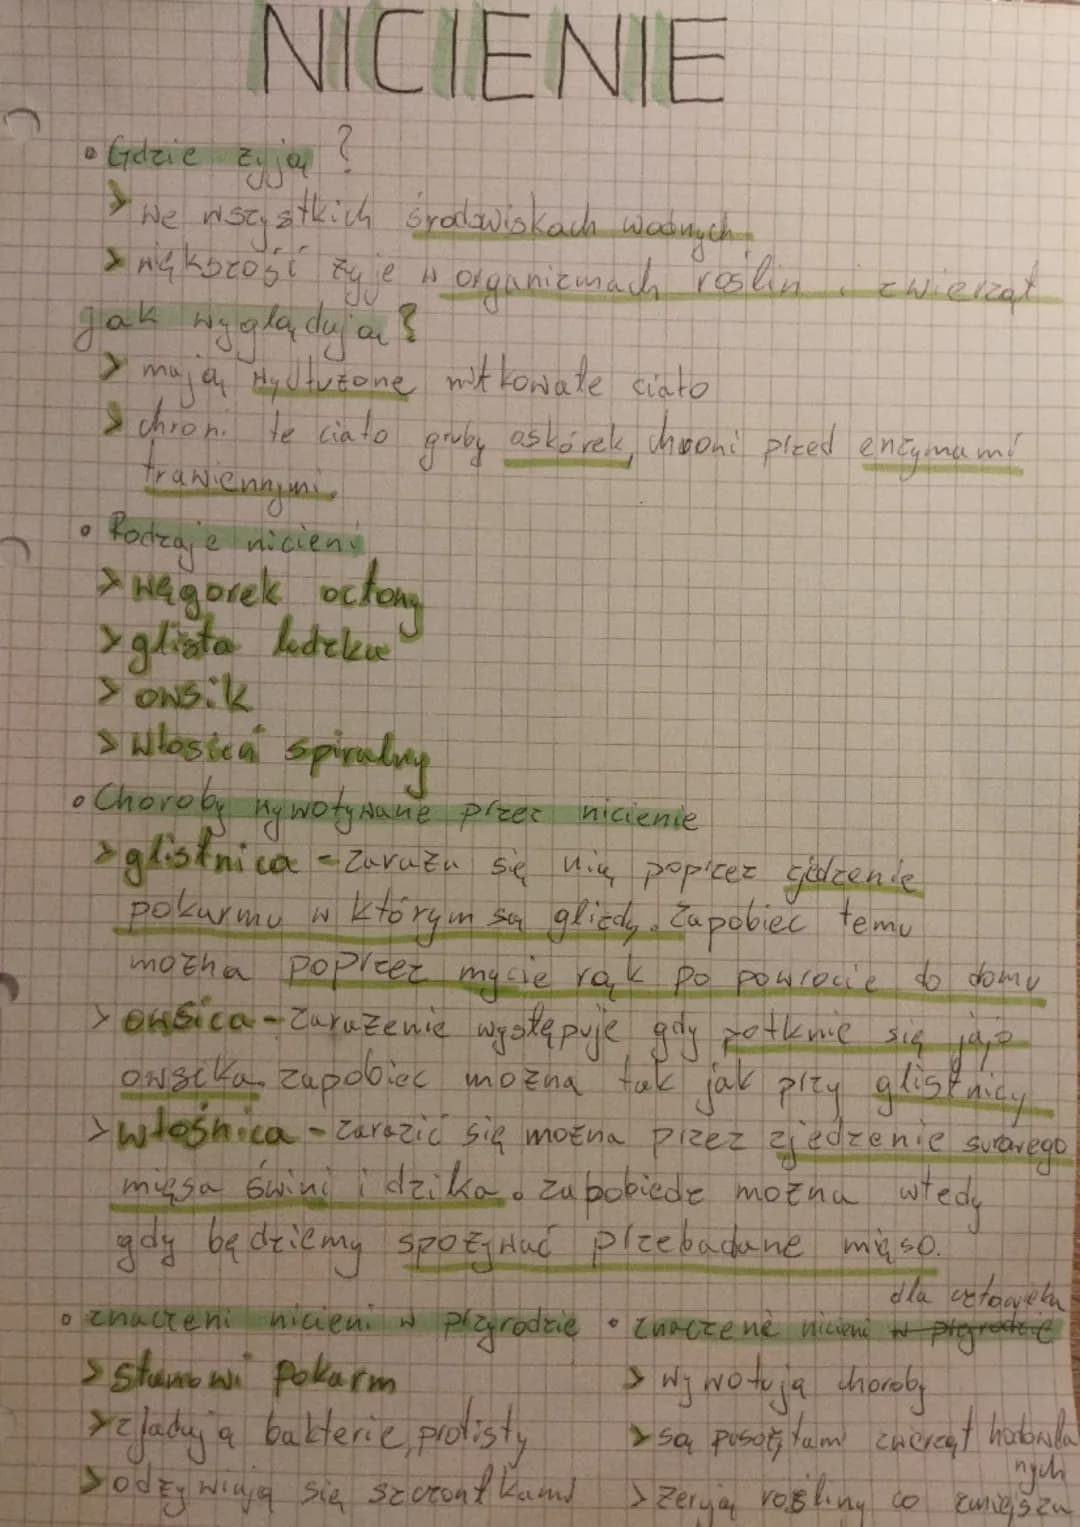 NICIENIE
• Gdzie żyją ?
> we wszystkich środowiskach wodnych
> większość żyje w organizmach roślin i zwierząt
Jak wyglądują ?
> mają wydłużone nitkowate ciało
> chroni te ciało gruby oskórek, chroni przed enzymami
trawiennymi.
• Rodzaje nicieni
> węgorek octowy
> glista ludzka
> owsik
> włosień spiralny
• Choroby wywoływane przez nicienie
> glistnica - zaraża się nią poprzez zjedzenie
pokarmu w którym są glizdy. Zapobiec temu
można poprzez mycie rąk po powrocie do domu
> owsica - zarażenie występuje gdy połknie się jajo
owsika. zapobiec można tak jak przy glistnicy
> włośnica - zarazić się można przez zjedzenie surowego
mięsa świni i dzika. zapobiedz można wtedy
gdy będziemy spożywać przebadane mięso.
• znaczeni nicieni w przyrodzie
> stanowi pokarm
> zjadują bakterie, protisty
> odżywiają się szczątkami
• znaczenie nicieni w przyrodzie dla człowieka
> wywołują choroby
> są pasożytami zwierząt hodowlanych
> żerują rośliny co zmiejsza